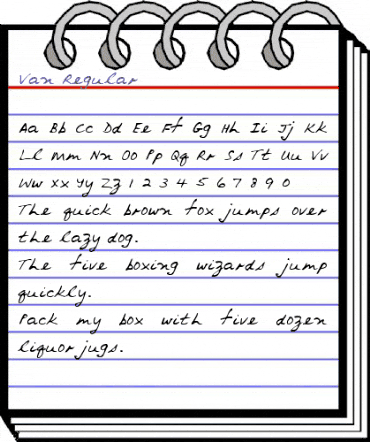 Van Regular
Aa Bb Cc Dd Ee Ff Gg Hh Ii Jj Kk
Ll Mm Nn Oo Pp Qq Rr Ss Tt Uu Vv
Ww Xx Yy Zz 1 2 3 4 5 6 7 8 9 0
The quick brown fox jumps over
the lazy dog.
The five boxing wizards jump
quickly.
Pack my box with five dozen
liquor jugs.